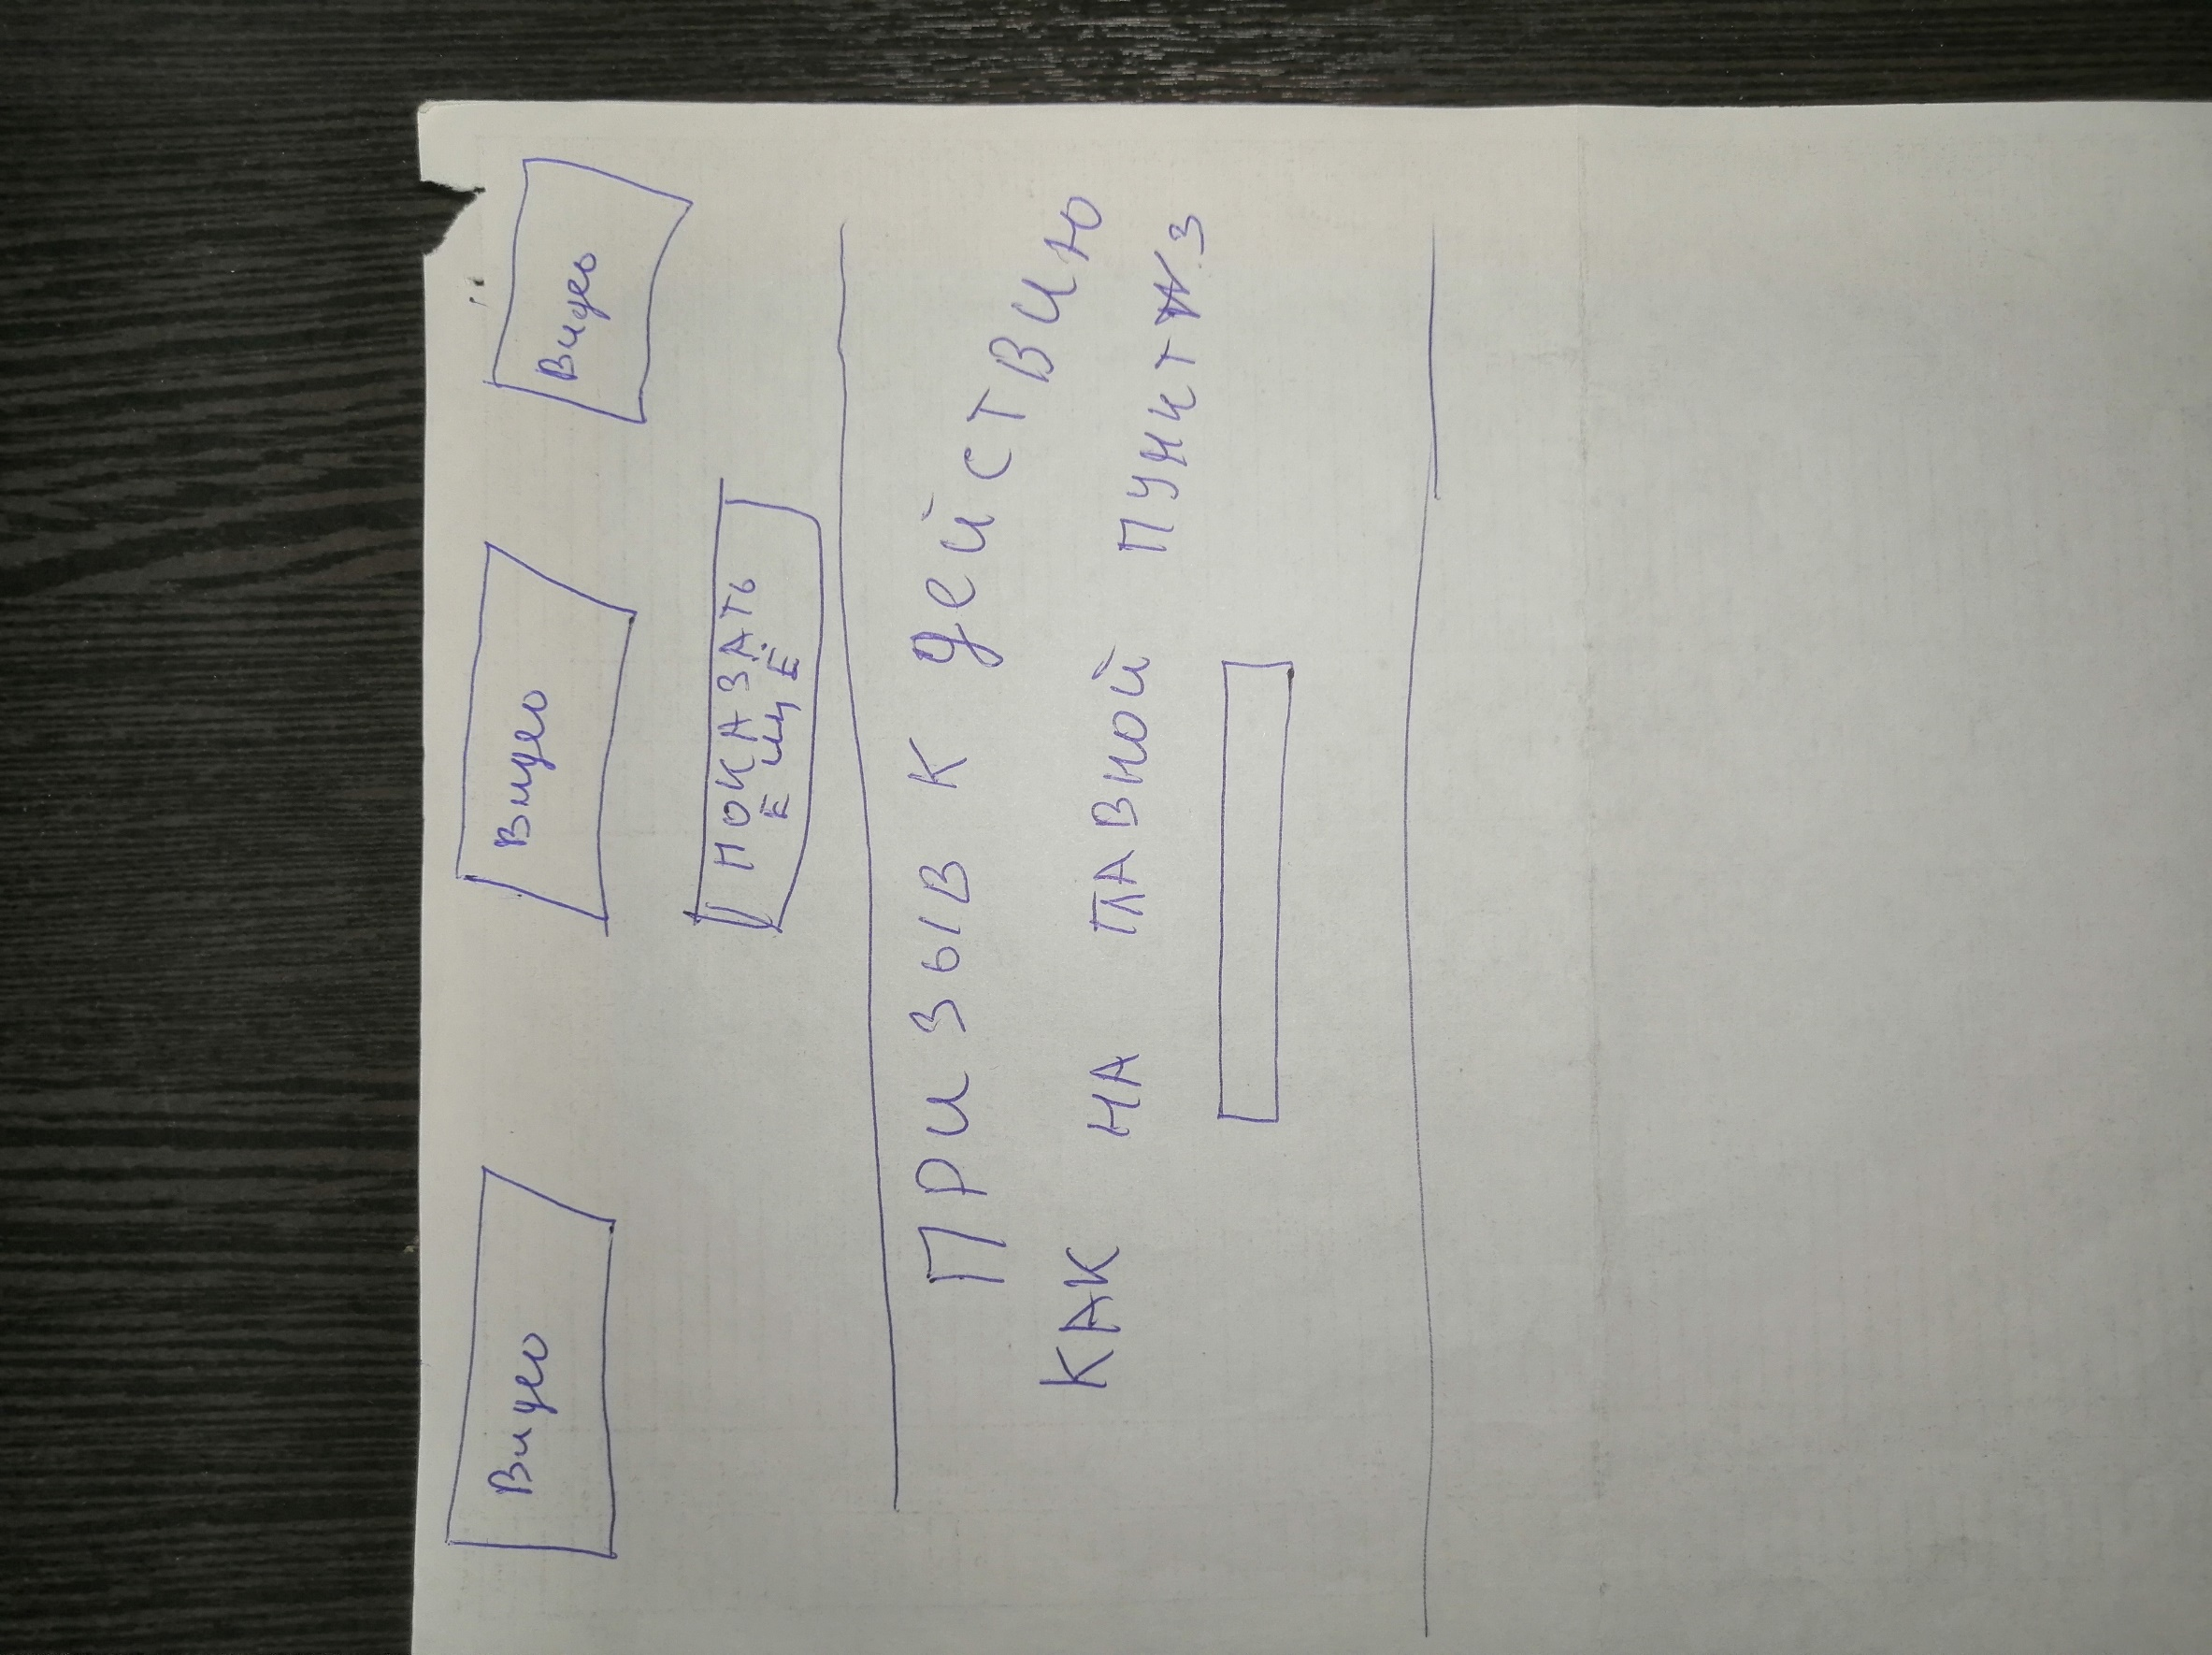 Видео Видео Видео
ПОКАЗАТЬ
ЕЩЕ
Призыв к действию
КАК НА ГЛАВНОЙ ПУНКТ №3